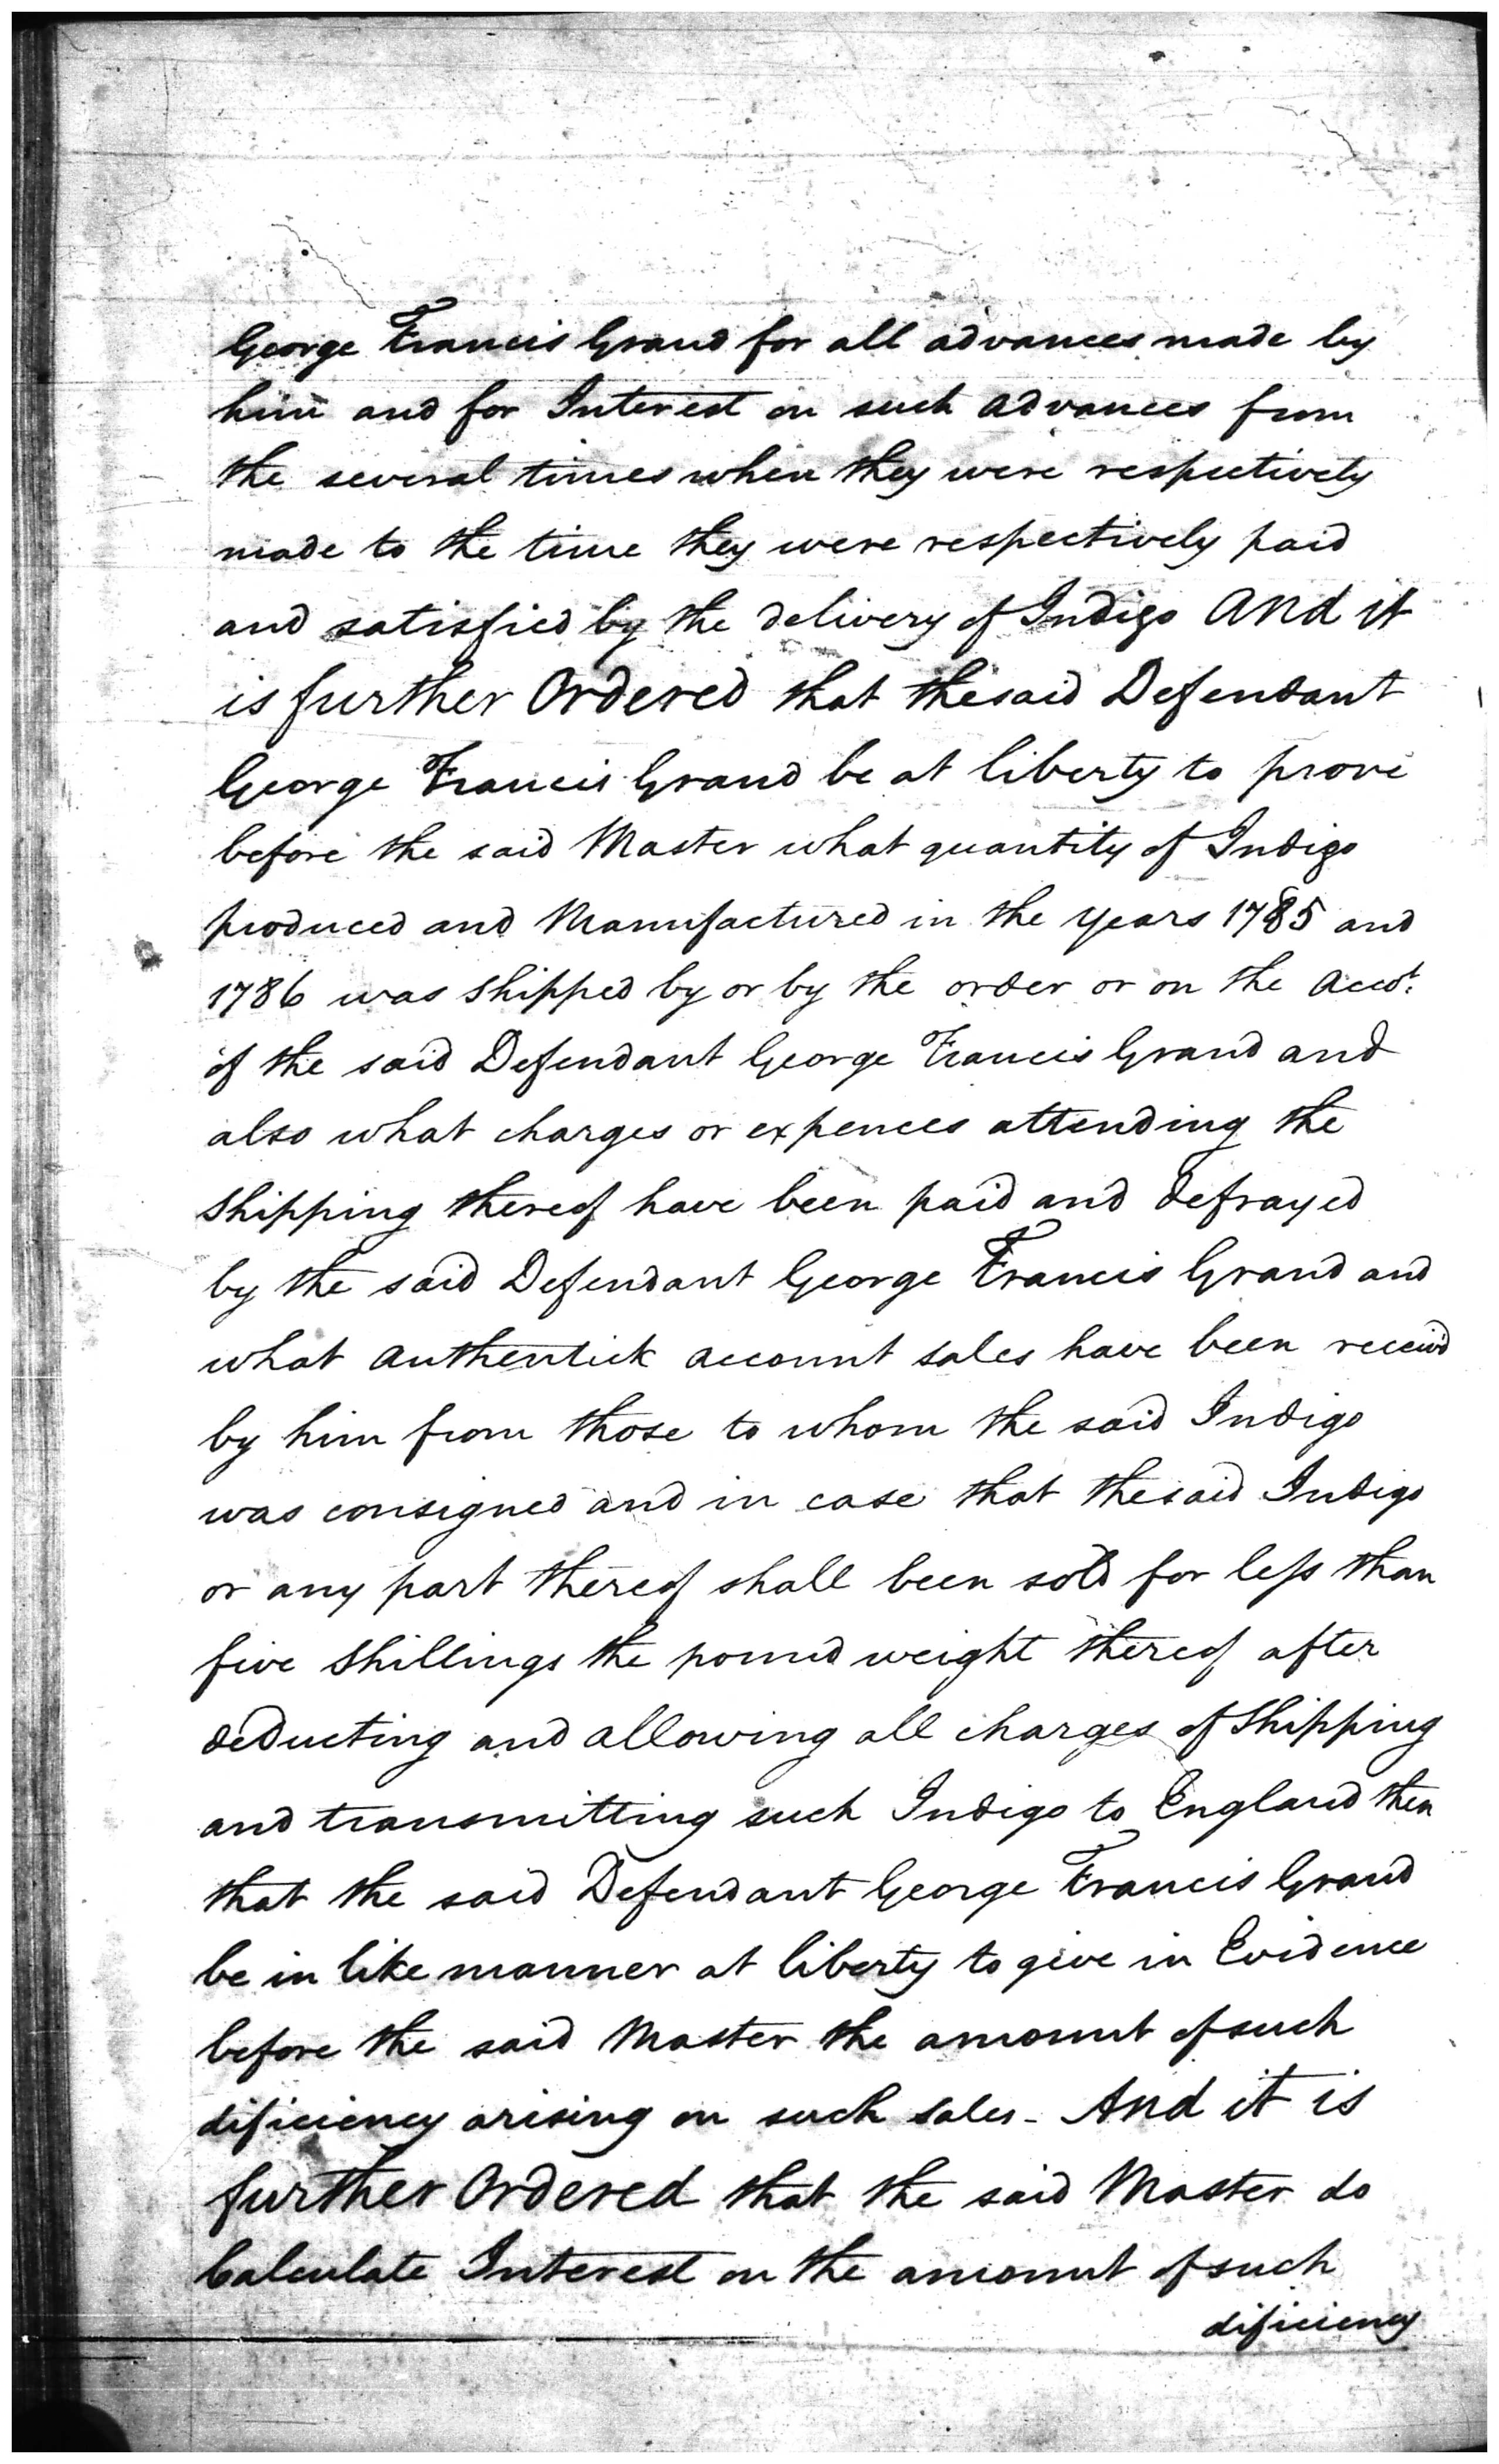 George Francis Grand for all advances made by
him and for Interest on such advances from
the several times when they were respectively
made to the time they were respectively paid
and satisfied by the delivery of Indigo And it
is further Ordered that the said Defendant
George Francis Grand be at liberty to prove
before the said Master what quantity of Indigo
produced and Manufactured in the years 1785 and
1786 was shipped by or by the order or on the Accot.
of the said Defendant George Francis Grand and
also what charges or expences attending the
Shipping thereof have been paid and defrayed
by the said Defendant George Francis Grand and
what authentick account sales have been receiv'd
by him from those to whom the said Indigo
was consigned and in case that the said Indigo
or any part thereof shall been sold for less than
five Shillings the pound weight thereof after
deducting and allowing all charges of Shipping
and transmitting such Indigo to England then
that the said Defendant George Francis Grand
be in like manner at liberty to give in Evidence
before the said Master the amount of such
dificiency arising on such sales - And it is
further Ordered that the said Master do
Calculate Interest on the amount of such
dificiency